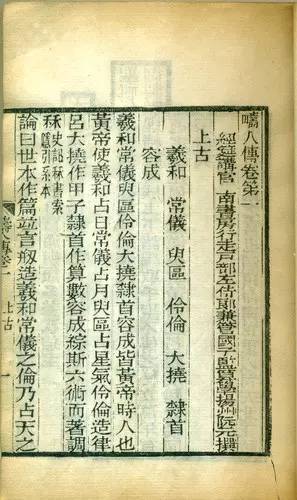 嚋人傳卷第一
經筵講官 南書房行走戶部左侍郎兼管國子監算學揚州阮元撰
上古
羲和 常儀 臾區 伶倫 大撓 隸首
容成
羲和常儀臾區伶倫大撓隸首容成皆黃帝時人也
黃帝使羲和占日常儀占月臾區占星氣伶倫造律
呂大撓作甲子隸首作算數容成綜斯六術而著調
秝史記秝書索隱引系本
論曰世本作篇竝言剏造羲和常儀之倫乃占天之
疇人傳卷一
上古
一